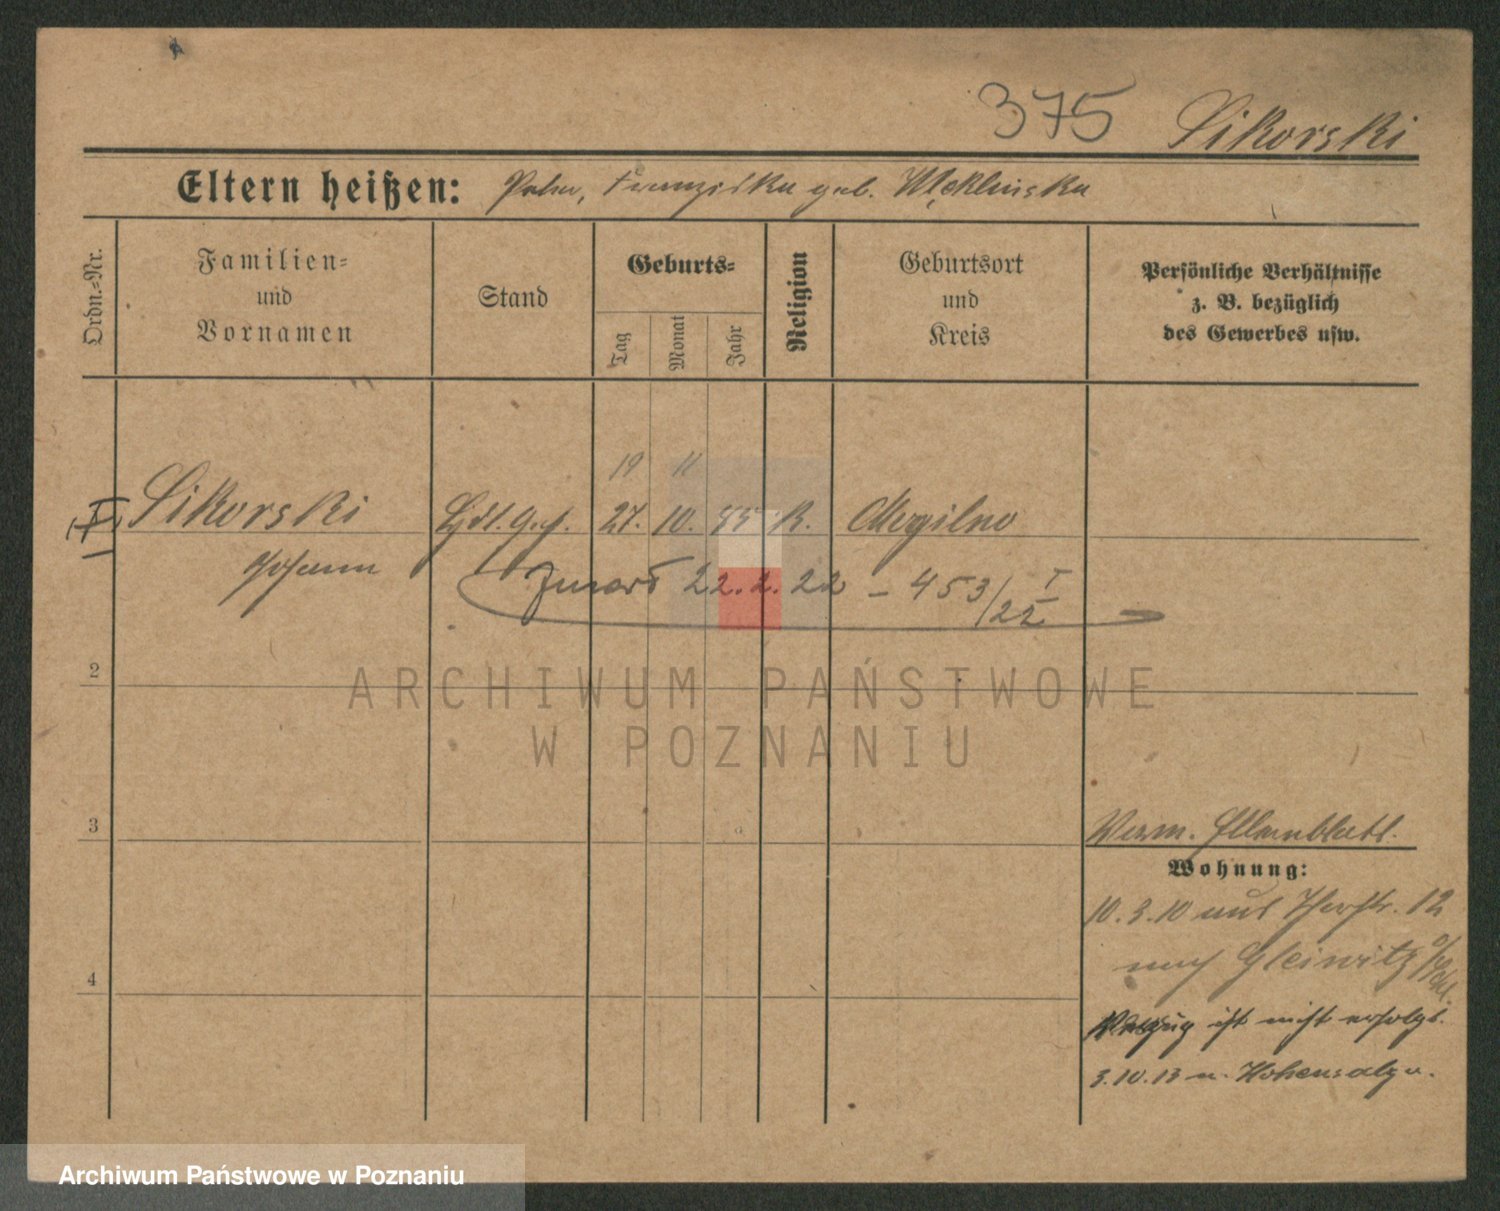 375 Sikorski
Eltern heißen: Peter, Franziska geb. Weklinska
Ordn.-Nr.
Familien-
und
Vornamen
Stand
Geburts-
Tag
Monat
Jahr
Religion
Geburtsort
und
Kreis
Persönliche Verhältnisse
z. B. bezüglich
des Gewerbes usw.
19 11
I Sikorski 27. 10. 85 K. Mogilno
Johann
Zmarł 22.2.22 – 453/22 I
ARCHIWUM PAŃSTWOWE
W POZNANIU
2
3
Verm. Elternblatt.
Wohnung:
10.3.10 aus 12
nach Gleiwitz
4
Verzug ist nicht erfolgt.
3.10.13 n. Hohensalza.
Archiwum Państwowe w Poznaniu